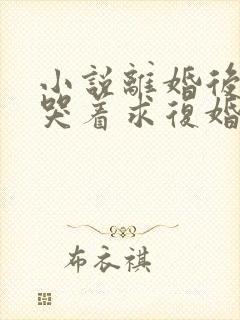 小說離婚後
哭着求復婚
布衣祺